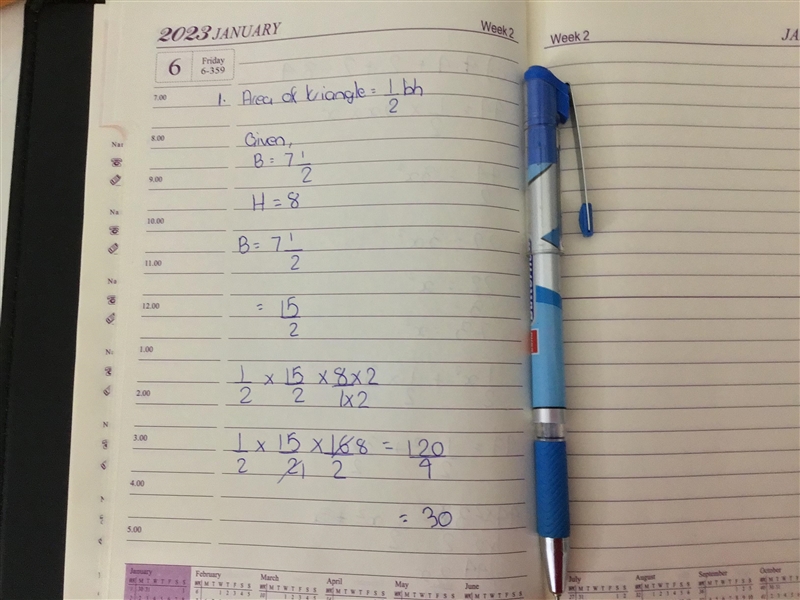 2023 JANUARY
Week 2
6
Friday
6-359
7.00
1. Area of triangle = 1/2 bh
8.00
Given,
B = 7 1/2
9.00
H = 8
10.00
B = 7 1/2
11.00
12.00
= 15/2
1.00
1/2 x 15/2 x 8x2/1x2
2.00
3.00
1/2 x 15/21 x 168/2 = 120/4
4.00
= 30
5.00
January
February
March
April
May
June
Week 2
JA
July
August
September
October